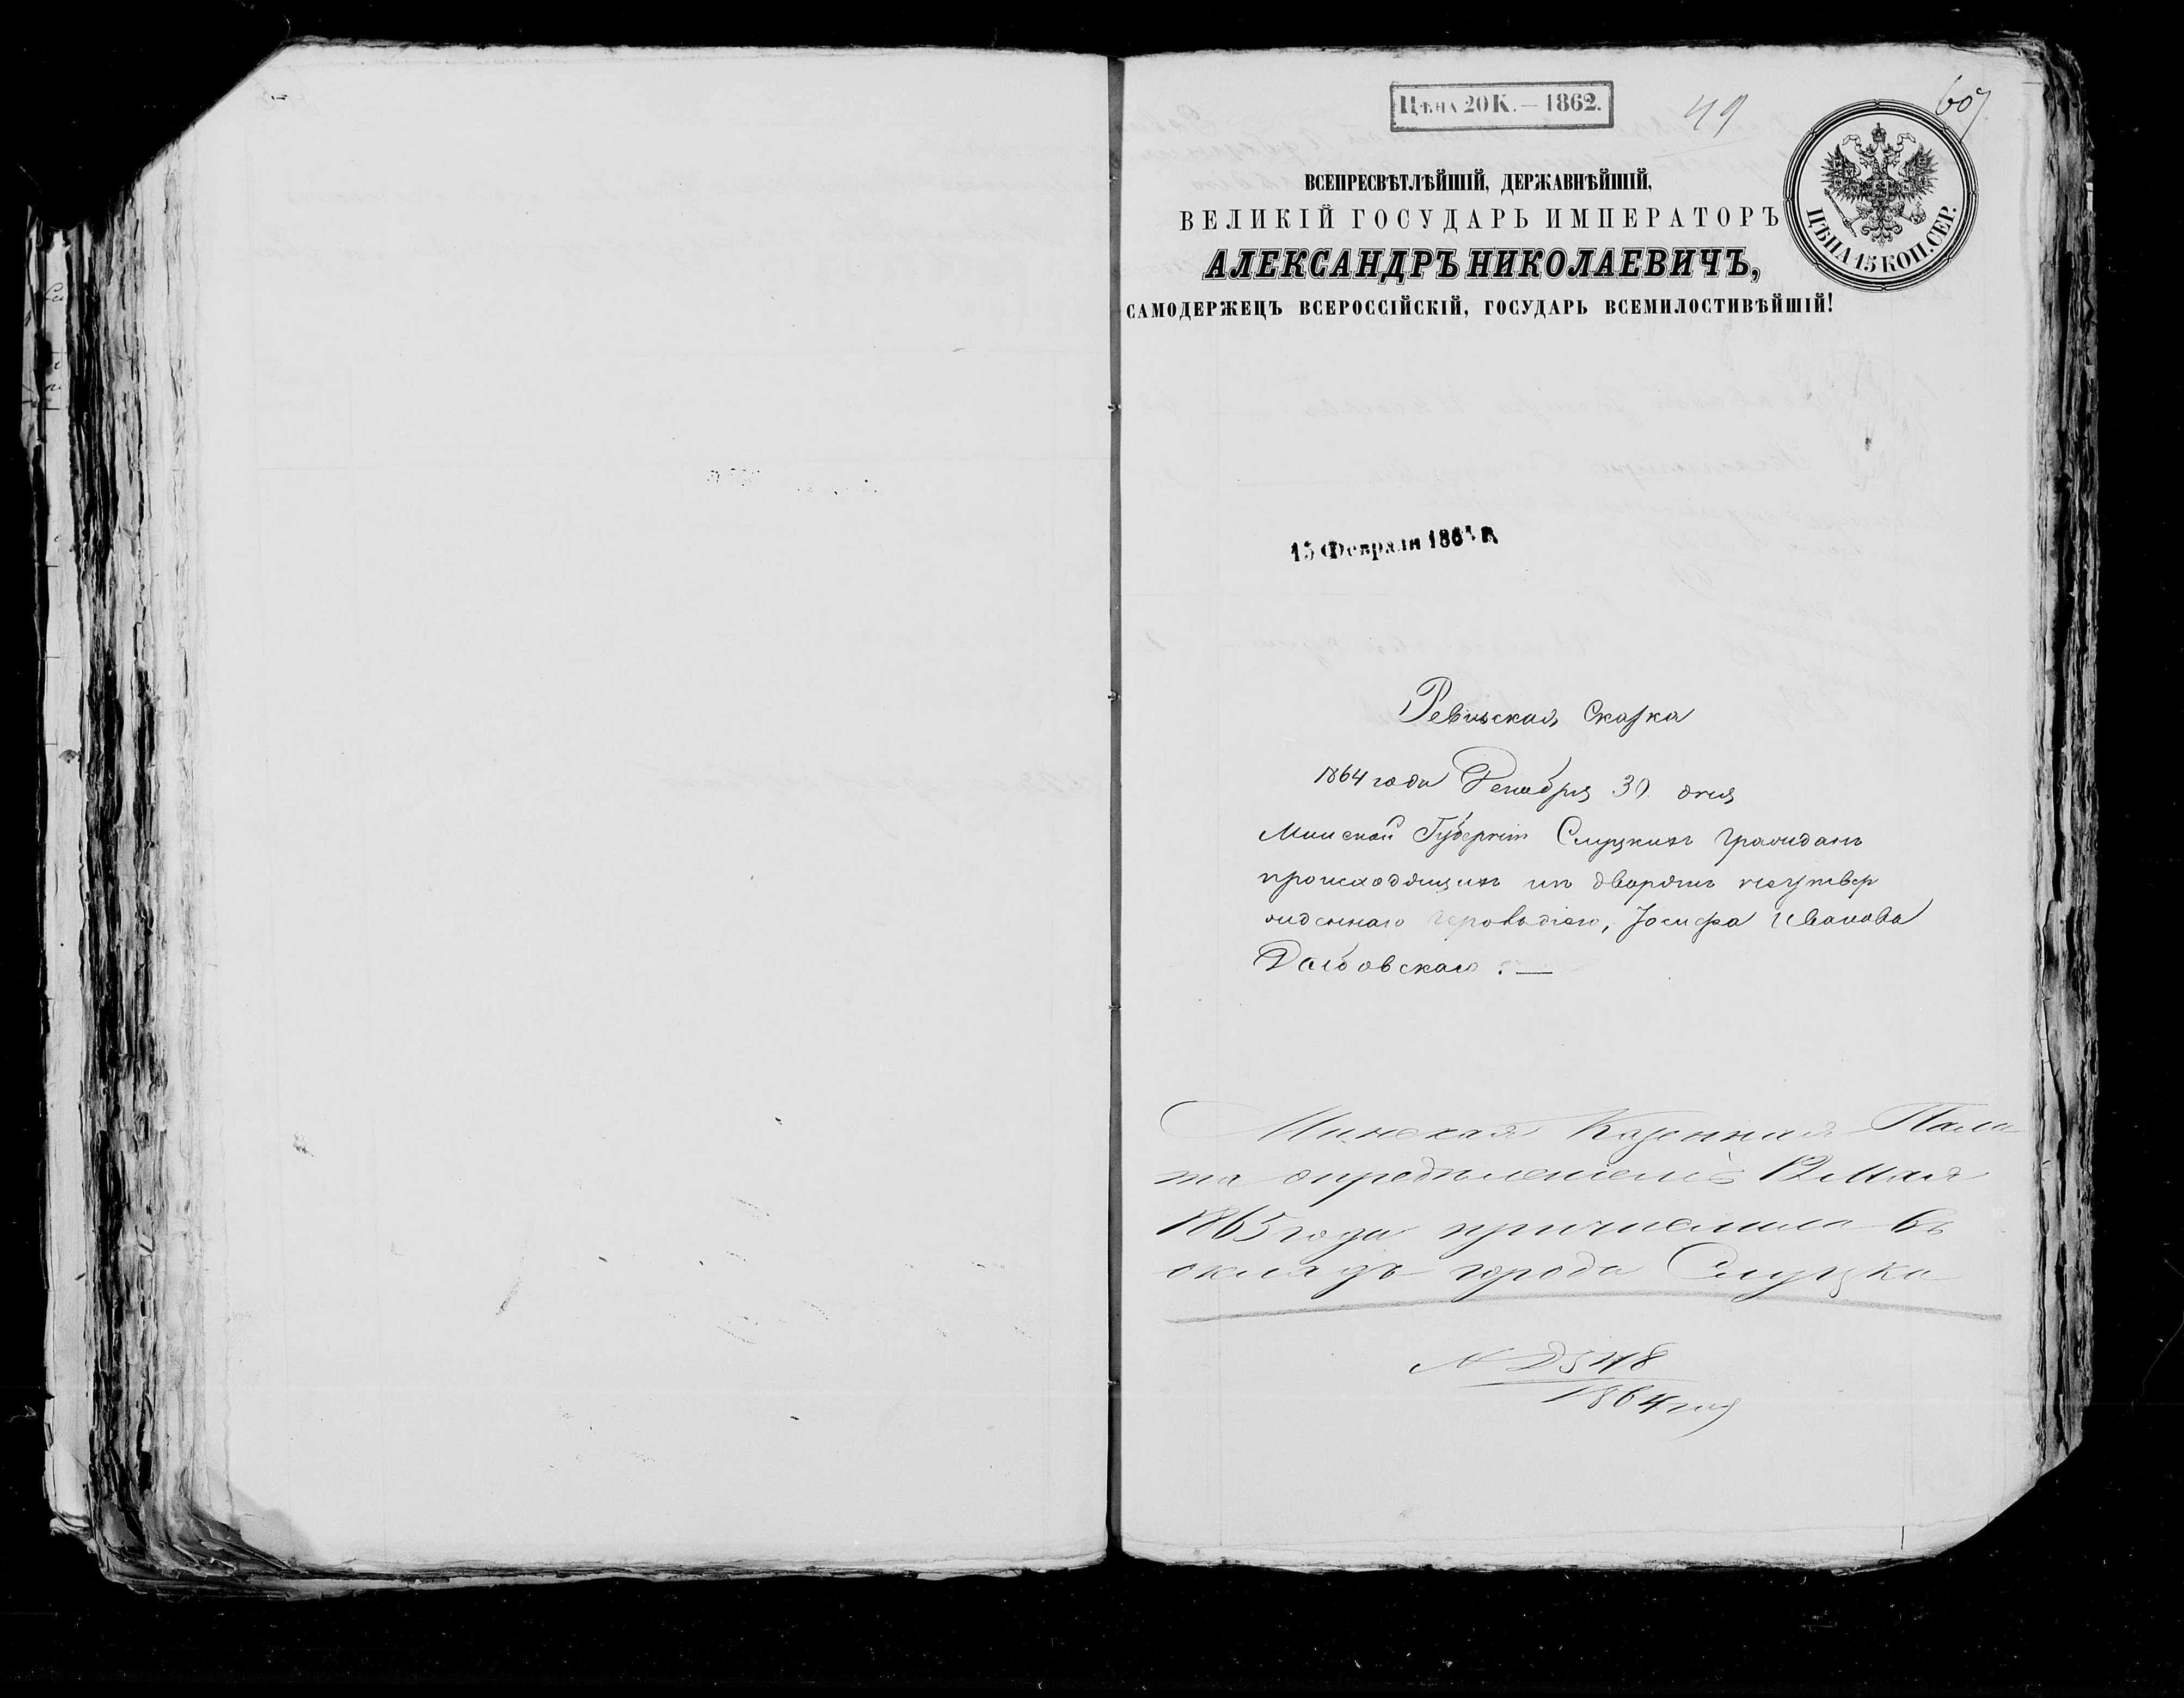 Цѣна 20 К. — 1862.
49
607
ВСЕПРЕСВѢТЛѢЙШІЙ, ДЕРЖАВНѢЙШІЙ,
ВЕЛИКІЙ ГОСУДАРЬ ИМПЕРАТОРЪ
АЛЕКСАНДРЪ НИКОЛАЕВИЧЪ,
САМОДЕРЖЕЦЪ ВСЕРОССІЙСКІЙ, ГОСУДАРЬ ВСЕМИЛОСТИВѢЙШІЙ!
ЦѢНА 15 КОП. СЕР.
15 Февраля
Ревизская Сказка
1864 года Декабря 30 дня
Минской Губерніи Слуцкихъ Гражданъ
происходящихъ изъ дворянъ неутвер
жденнаго Герольдіею, Іосифа Иванова
Минская Казенная Пала
та опредѣленіемъ 12 Мая
1865 года причислила въ
окладъ города Слуцка
N 2548
1864